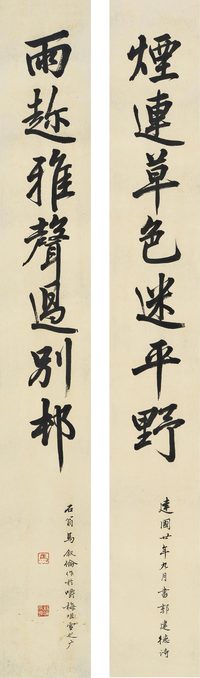 煙連草色迷平野
建國卅年九月書郭建德詩
雨趂雅聲過別邨
石翁馬叙倫作於嚼梅咀雪之